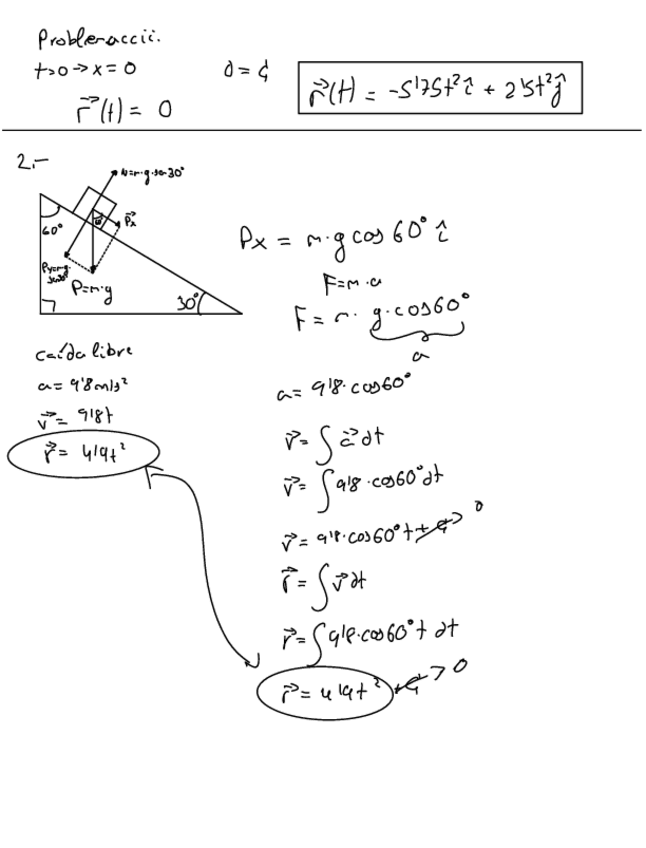 Problemaccii.
t=0 → x=0
0 = C₁
r⃗(t) = -5'75t² î + 2'5t² ĵ
r⃗(t) = 0
2.-
N=m·g·sen30°
60°
P⃗x
Py=m·g·
P=m·g
30°
Px = m·g cos 60° î
F=m·a
F = m· g·cos60°
a
Caída libre
a= 9'8m/s²
v⃗= 9'8t
r⃗= 4'9t²
a= 9'8·cos60°
v⃗= ∫ a⃗ dt
v⃗= ∫ 9'8·cos60° dt
v⃗= 9'8·cos60° t + C₁ → 0
r⃗ = ∫ v⃗ dt
r⃗= ∫ 9'8·cos60° t dt
r⃗= 4'9t² + C₁ → 0